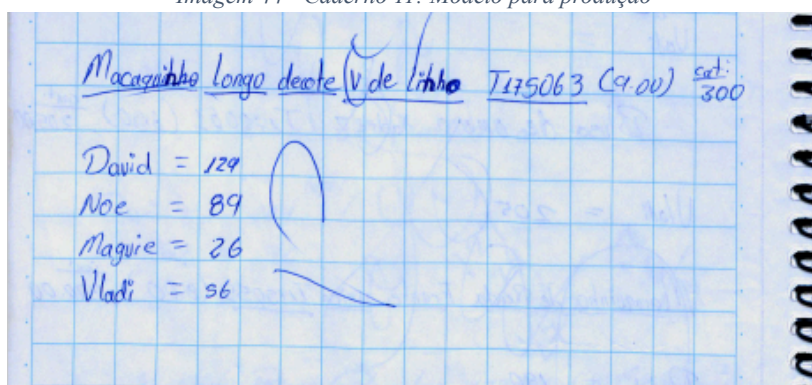 Imagem 44 - Caderno 11: Modelo para produção
Macaquinho longo decote V de linho T175063 (9.00) cat: 300
David = 129
Noe = 89
Maguie = 26
Vladi = 56